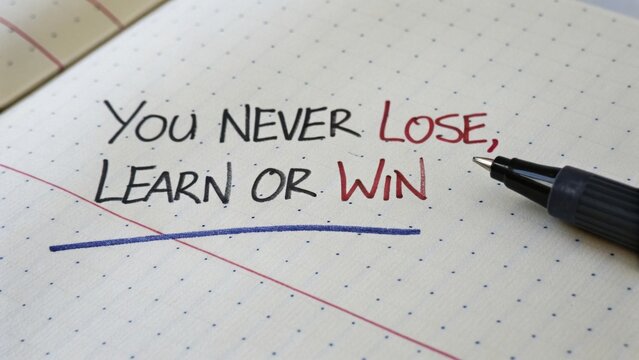 YOU NEVER LOSE,
LEARN OR WIN